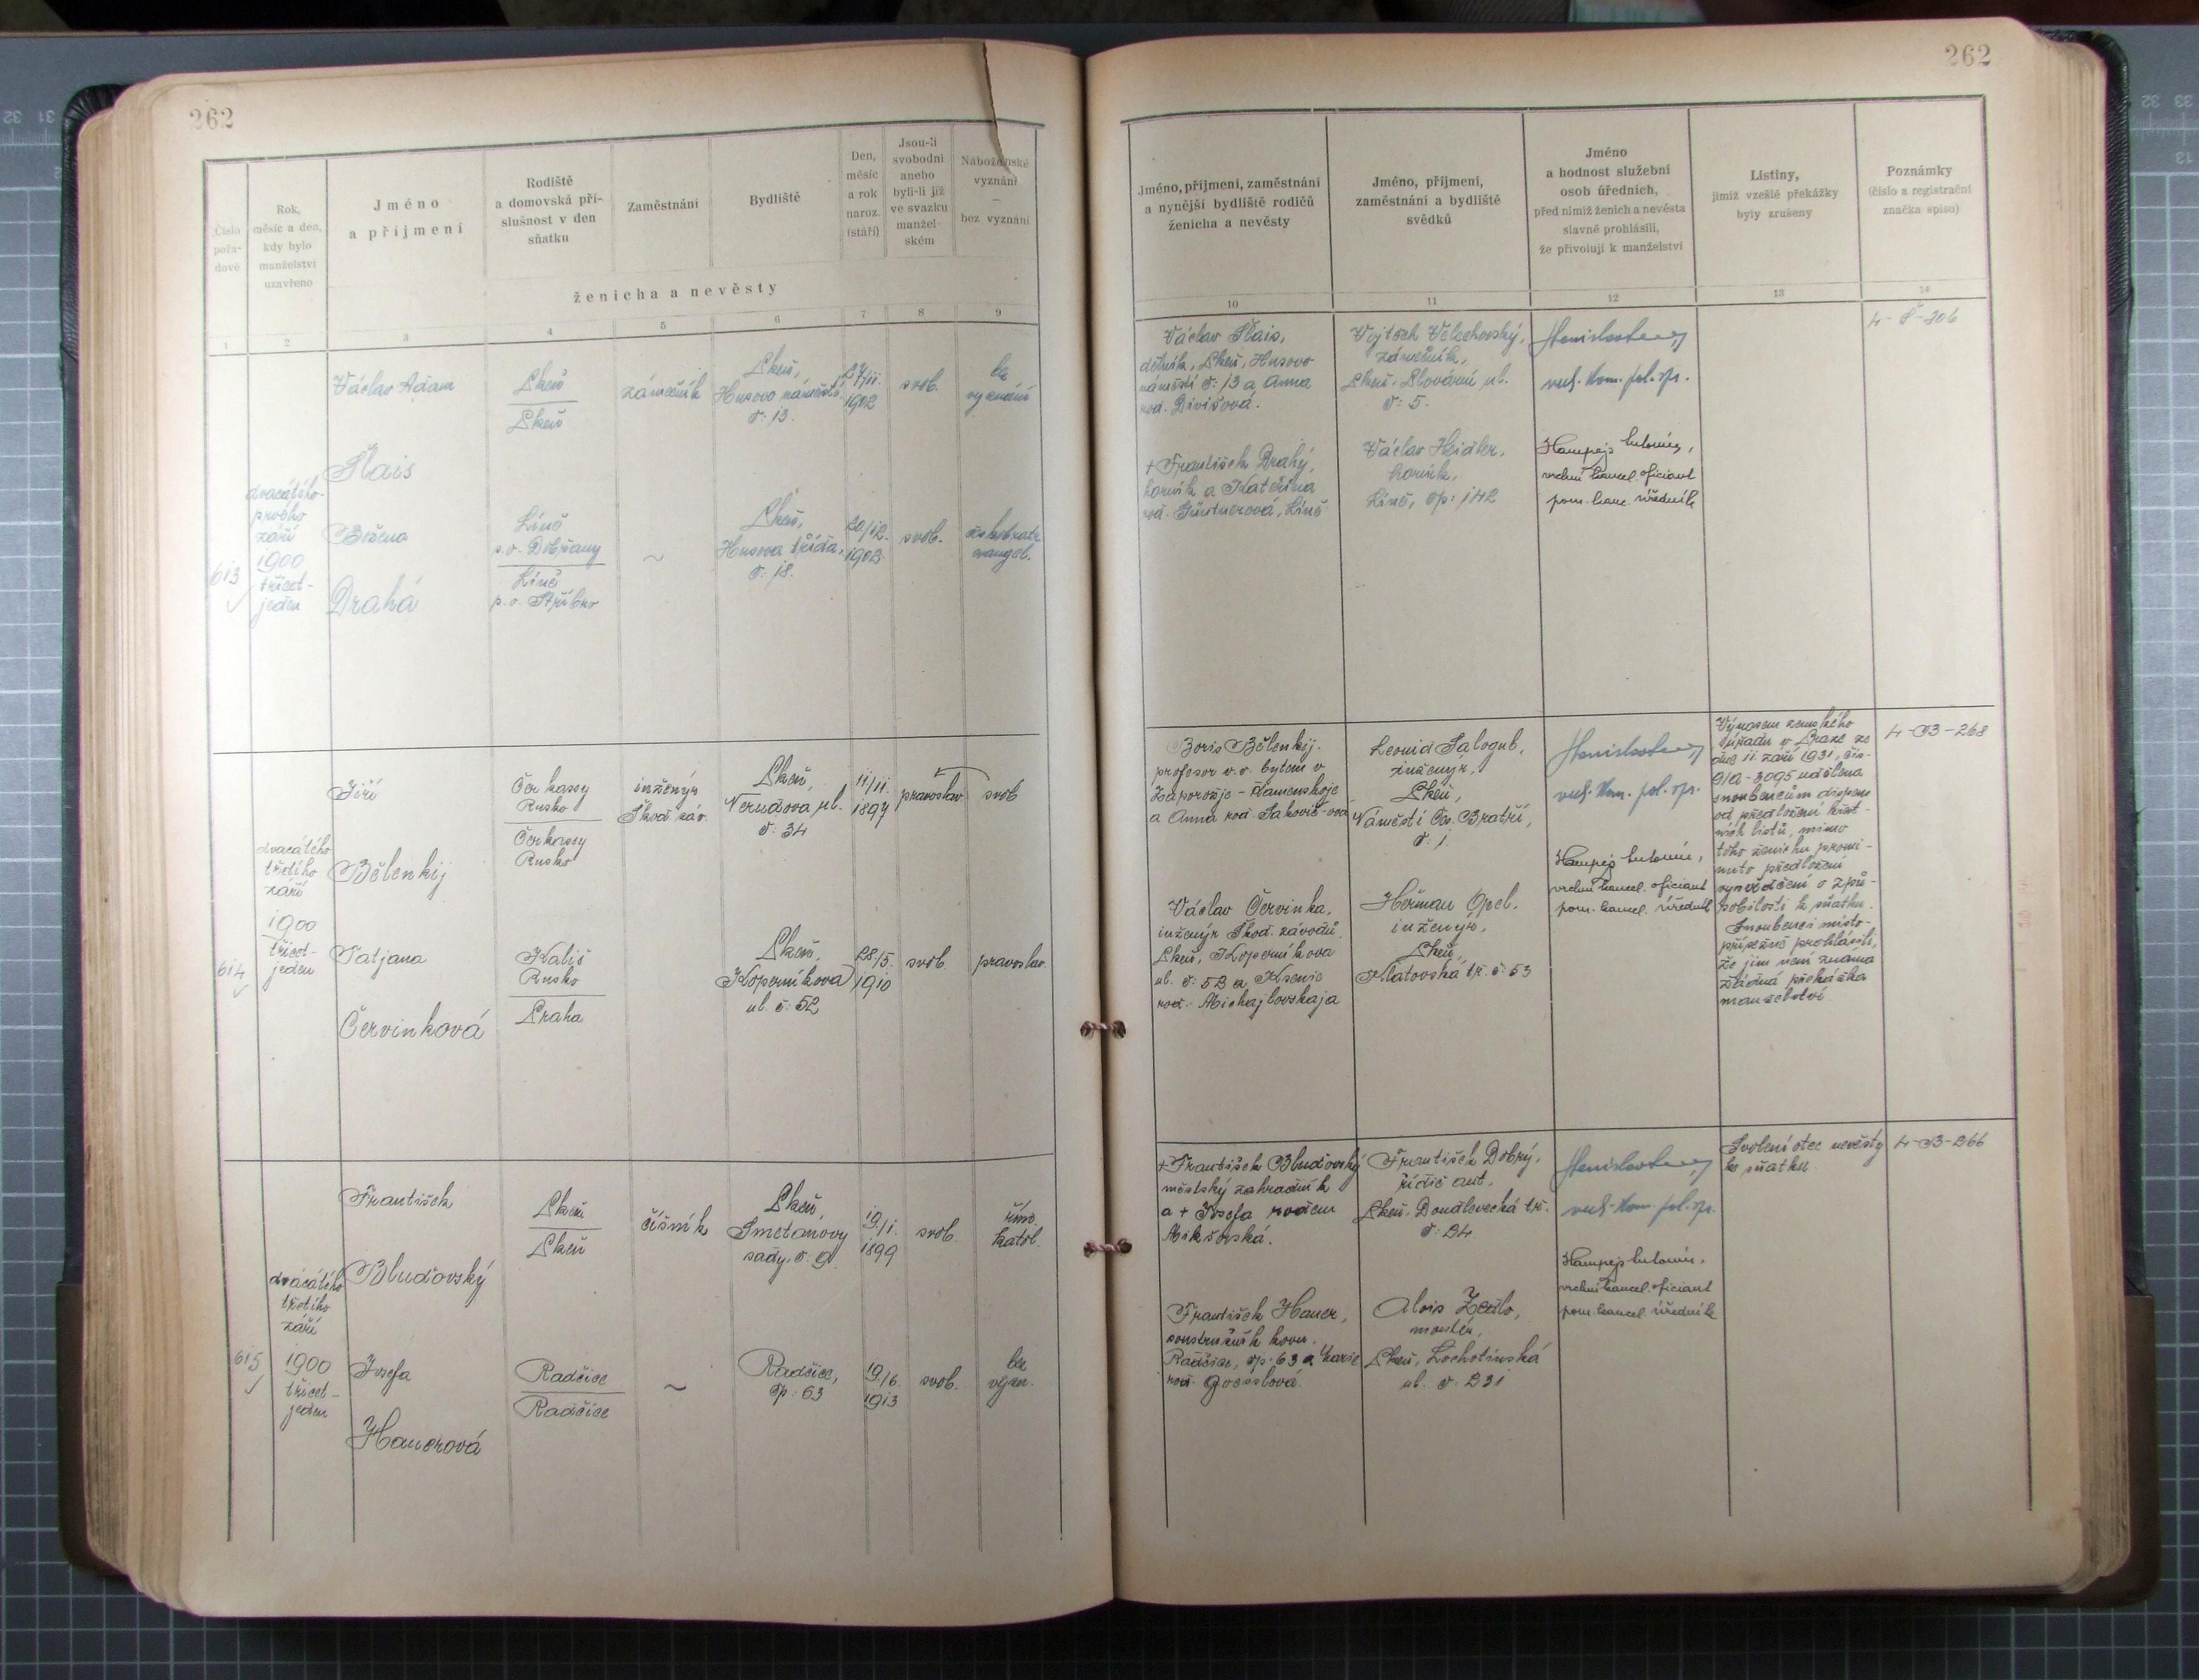 262
262
Číslo
pořa-
dové
Rok,
měsíc a den,
kdy bylo
manželství
uzavřeno
Jméno
a příjmení
Rodiště
a domovská pří-
slušnost v den
sňatku
Zaměstnání
Bydliště
Den,
měsíc
a rok
naroz.
(stáří)
Jsou-li
svobodni
anebo
byli-li již
ve svazku
manžel-
ském
Náboženské
vyznání
–
bez vyznání
ženicha a nevěsty
1 2 3 4 5 6 7 8 9
Jméno, příjmení, zaměstnání
a nynější bydliště rodičů
ženicha a nevěsty
Jméno, příjmení,
zaměstnání a bydliště
svědků
Jméno
a hodnost služební
osob úředních,
před nimiž ženich a nevěsta
slavně prohlásili,
že přivolují k manželství
Listiny,
jimiž vzešlé překážky
byly zrušeny
Poznámky
(číslo a registrační
značka spisu)
10 11 12 13 14
613
dvacátého-
prvého
září
1900
třicet-
jeden
Václav Adam
Šlais
Plzeň
Plzeň
zámečník
Plzeň,
Husovo náměstí
č: 13.
1902
svob.
bez
vyznání
Božena
Drahá
Líně
s.o. Dobřany
Líně
p.o. Stříbro
~
Plzeň,
Husova třída,
č: 18.
20/12.
1903
svob.
českobratr.
evangel.
Václav Šlais,
dělník, Plzeň, Husovo
náměstí č: 13 a Anna
roz. Divišová.
+ František Drahý,
horník a Kateřina
roz. Güntnerová, Líně
Vojtěch Velechovský,
zámečník,
Plzeň, Slovanů ul.
č: 5.
Václav Heidler,
horník,
Líně, čp: 142
vrch. kom. pol. spr.
Hampejs Antonín,
vrchní kancel. oficiant
pom. kanc. úředník
4-Š-306
614
dvacátého
třetího
září
1900
třicet-
jeden
Jiří
Bělenkij
Čerkassy
Rusko
Čerkassy
Rusko
inženýr
Škod. záv.
Plzeň,
Nerudova ul.
č: 34
11/11.
1897
pravoslav.
svob
Tatjana
Červinková
Kališ
Rusko
Praha
Plzeň,
Koperníkova
ul. č: 52
28/5.
1910
svob.
pravoslav.
Boris Bělenkij.
profesor v.v. bytem v
Záporožje - Kamenskoje
a Anna roz. Jakovič-ová
Václav Červinka,
inženýr Škod. závodů,
Plzeň, Koperníkova
ul. č: 52 a Ksenie
roz. Michajlovskaja
Leonid Salogub,
inženýr,
Plzeň,
Náměstí Čes. Bratří,
č: 1.
Heřman Opel.
inženýr,
Plzeň,
Klatovská tř. č: 53
vrch. kom. pol. spr.
Hampejs Antonín,
vrchní kancel. oficiant
pom. kancel. úředník
Výnosem zemského
úřadu v Praze ze
dne 11. září 1931, čís.
9/A-3095 udělena
snoubencům dispens
od předložení křest-
ních listů, mimo
toho ženichu promi-
nuto předložení
vysvědčení o způ-
sobilosti k sňatku.
Snoubenci místo-
přísežně prohlásili,
že jim není známa
žádná překážka
manželství.
4-B-268
615
dvacátého
třetího
září
1900
třicet-
jeden
František
Bluďovský
Plzeň
Plzeň
číšník
Plzeň,
Smetanovy
sady č. 9
19./1.
1899
svob.
řím.
katol.
Josefa
Hauerová
Radčice
Radčice
~
Radčice,
čp: 63
19./6.
1913
svob.
bez
vyzn.
+ František Bluďovský
městský zahradník
a + Josefa rozen
Mikšovská.
František Hauer,
soustružník kovu.
Radčice, čp: 63 a Marie
roz. Goesslová.
František Dobrý.
řidič aut.
Plzeň, Doudlevecká tř.
č: 24
Alois Zedlo,
montér,
Plzeň, Lochotínská
ul. č. 231
vrch. kom. pol. spr.
Hampejs Antonín.
vrchní kancel. oficiant
pom. kancel. úředník
Svolení otce nevěsty
ke sňatku.
4-B-266